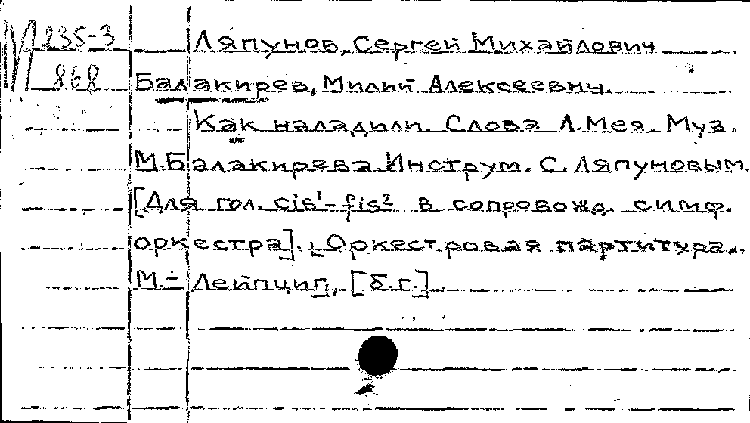 М 235-3
868
Ляпунов, Сергей Михайлович
Балакирев, Милий Алексеевич.
Как наладили. Слова Л.Мея. Муз.
М.Балакирева. Инструм. С. Ляпуновым.
[Для гол. cis¹-fis² в сопровожд. симф.
оркестра]. Оркестровая партитура.
М.- Лейпциг, [б.г.].